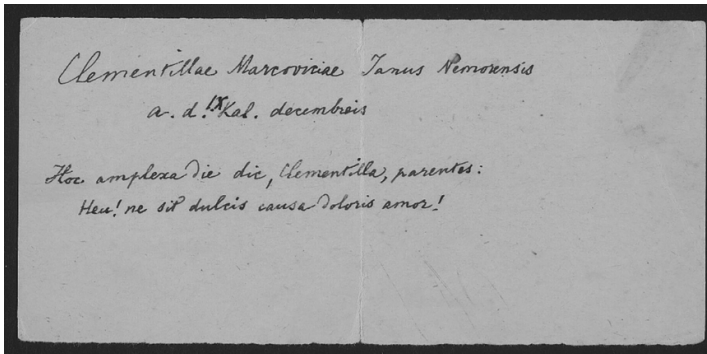 Clementillae Marcoviciae Janus Nemorensis
a. d. IX Kal. decembreis
Hoc amplexa die dic, Clementilla, parentes:
Heu! ne sit dulcis causa doloris amor!